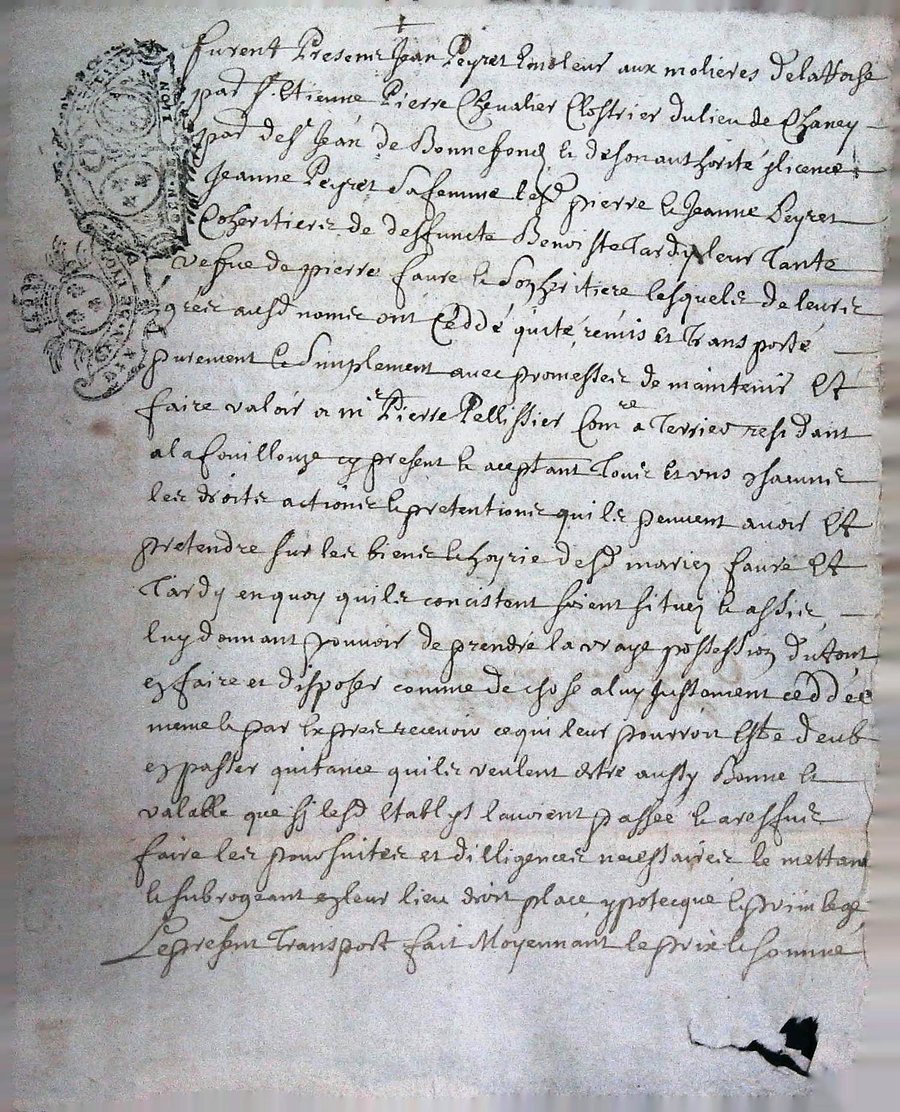 furent Presens Jean Peyret Emoleur aux molieres de la
par St Etienne Pierre Chevalier Clostrier du lieu de Chaney
par de St Jean de Bonnefond & de son authorité & licence
Jeanne Peyret sa femme lesd pierre & Jeanne Peyret
Coheritiers de deffuncte Benoiste Tardy leur Tante
vefve de pierre faure & son heritiere lesquels de leurs
grés ausd noms ont Ceddé quité remis et Transporté
purement & Simplement avec promesses de maintenir Et
faire valoir a mr Pierre Pellissier Comre a Terrier residant
a la fouillouze cy present & aceptant Tous et uns chacuns
les droits actions & pretentions quils peuvent avoir Et
pretendre sur les biens & hoyrie desd mariez faure Et
Tardy en quoy quils concistent soient situez & assis
luy donnant pouvoir de prendre la vraye possession du tout
en faire et disposer comme de chose a luy Justement ceddée
meme & par Exprès recevoir ce qui leur pourroit Estre deub
en passer quitance quils veulent estre aussy Bonne &
valable que sy lesd Etablys lavoient passée & a
faire les poursuites et dilligences necessaires le mettant
& subrogeant en leur lieu droit place ypotecque & privilege
Le present Transport fait Moyennant le prix & somme